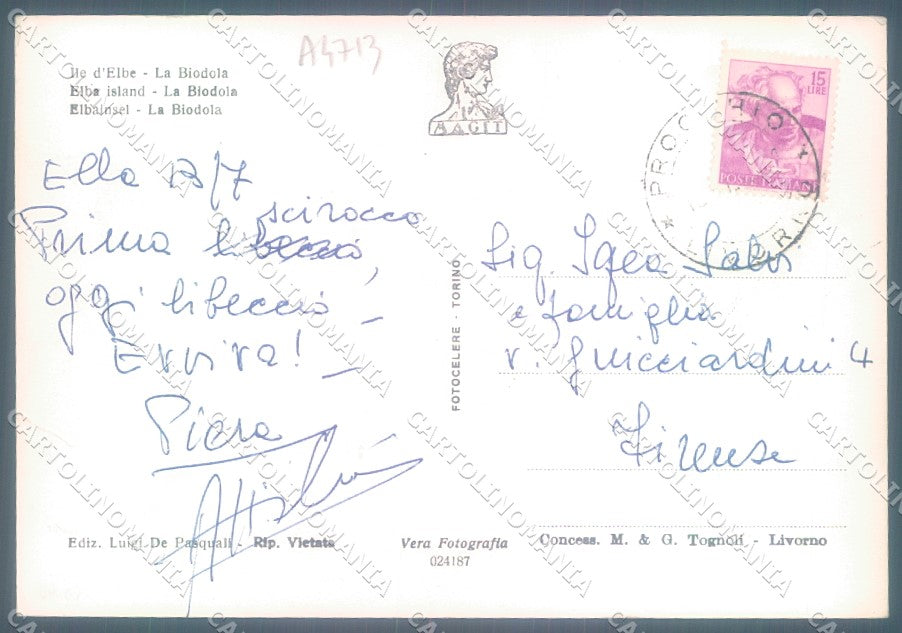 A4713
Ile d'Elbe - La Biodola
Elba island - La Biodola
Elbainsel - La Biodola
MAGIT
15
LIRE
POSTE ITALIANE
PROCCHIO
LIVORNO
Elba 13/7
scirocco
Prima libeccio,
oggi libeccio -
Evviva! -
Piera
Attilio
Sig.
e famiglia
v. Guicciardini 4
Firenze
FOTOCELERE - TORINO
Ediz. Luigi De Pasquali - Rip. Vietata
Vera Fotografia
024187
Concess. M. & G. Tognoli - Livorno
CARTOLINOMANIA